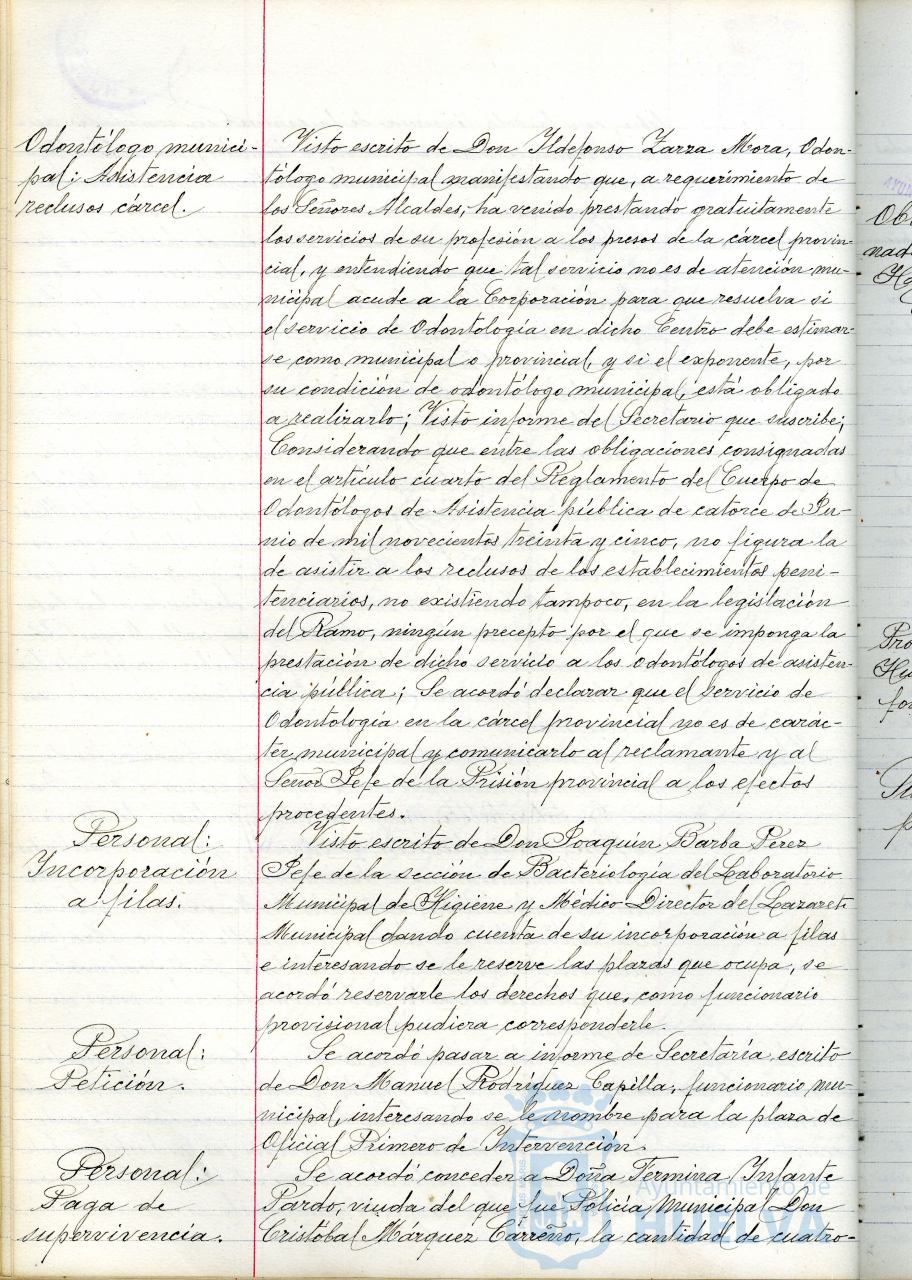 Odontólogo munici-
pal: Asistencia
reclusos cárcel.
Visto escrito de Don Ildefonso Zarza Mora, Odon-
tólogo municipal manifestando que, a requerimiento de
los Señores Alcaldes, ha venido prestando gratuitamente
los servicios de su profesión a los presos de la cárcel provin-
cial, y entendiendo que tal servicio no es de atención mu-
nicipal acude a la Corporación para que resuelva si
el servicio de Odontología en dicho Centro debe estimar-
se como municipal o provincial, y si el exponente, por
su condición de odontólogo municipal, está obligado
a realizarlo; Visto informe del Secretario que suscribe;
Considerando que entre las obligaciones consignadas
en el artículo cuarto del Reglamento del Cuerpo de
Odontólogos de Asistencia pública de catorce de Ju-
nio de mil novecientos treinta y cinco, no figura la
de asistir a los reclusos de los establecimientos peni-
tenciarios, no existiendo tampoco, en la legislación
del Ramo, ningún precepto por el que se imponga la
prestación de dicho servicio a los odontólogos de asisten-
cia pública; Se acordó declarar que el servicio de
Odontología en la cárcel provincial no es de carác-
ter municipal y comunicarlo al reclamante y al
Señor Jefe de la Prisión provincial a los efectos
procedentes.
Personal:
Incorporación
a filas.
Visto escrito de Don Joaquín Barba Pérez
Jefe de la sección de Bacteriología del Laboratorio
Municipal de Higiene y Médico Director del Lazareto
Municipal dando cuenta de su incorporación a filas
e interesando se le reserve las plazas que ocupa, se
acordó reservarle los derechos que, como funcionario
provisional pudiera corresponderle.
Personal:
Petición.
Se acordó pasar a informe de Secretaría escrito
de Don Manuel Rodríguez Capilla, funcionario mu-
nicipal, interesando se le nombre para la plaza de
Oficial Primero de Intervención.
Personal:
Paga de
supervivencia.
Se acordó conceder a Doña Fermina Infante
Pardo, viuda del que fue Policía Municipal Don
Cristóbal Márquez Carreño, la cantidad de cuatro-
Ayuntamiento de
HUELVA